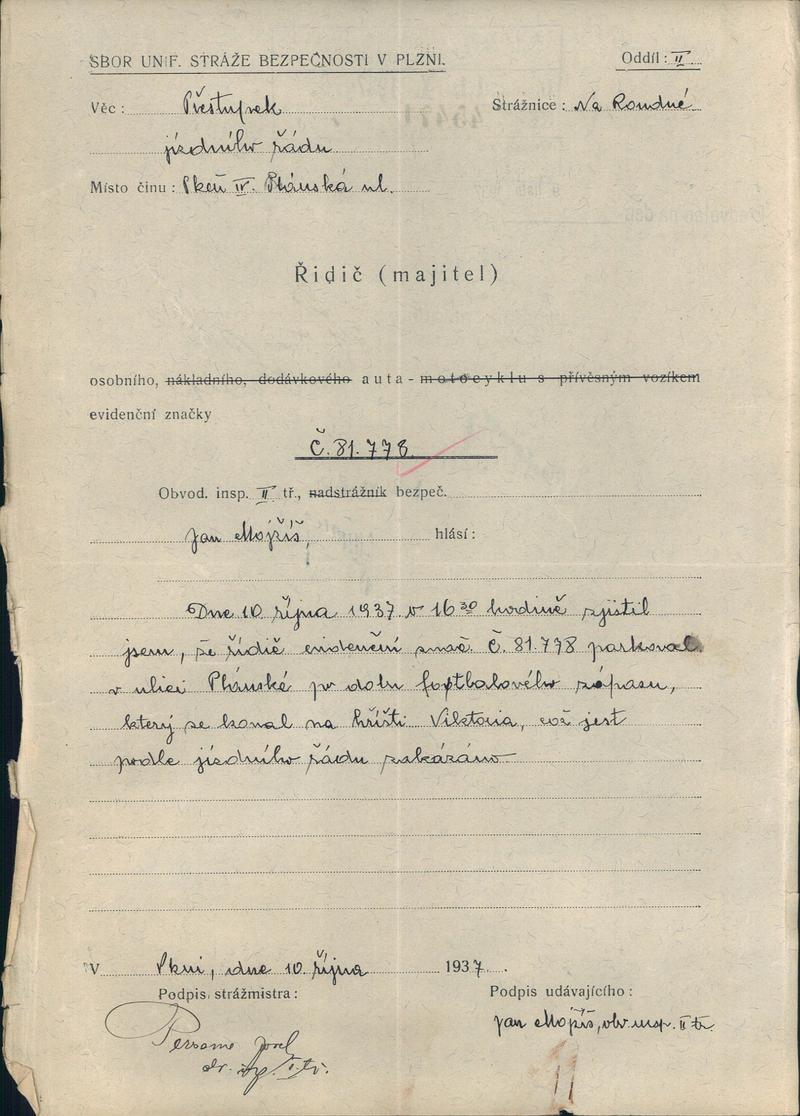 SBOR UNIF. STRÁŽE BEZPEČNOSTI V PLZNI.
Oddíl: II
Věc: Přestupek
Strážnice: Na Roudné
jízdního řádu
Místo činu: Plzeň IV. Plánská ul.
Řidič (majitel)
osobního, nákladního, dodávkového auta - motocyklu s přívěsným vozíkem
evidenční značky
Č. 81.778
Obvod. insp. II tř., nadstrážník bezpeč.
Jan Mojžíš, hlásí:
Dne 10 října 1937 v 16 30 hodině zjistil
jsem, že řidič evidenční znač. Č. 81.778 parkoval
v ulici Plánské po dobu footbalového zápasu,
který se konal na hřišti Viktoria, což jest
podle jízdního řádu zakázáno
V Plzni, dne 10. října 1937.
Podpis strážmistra:
Podpis udávajícího:
Jan Mojžíš, obv. insp. II tř.
Josef